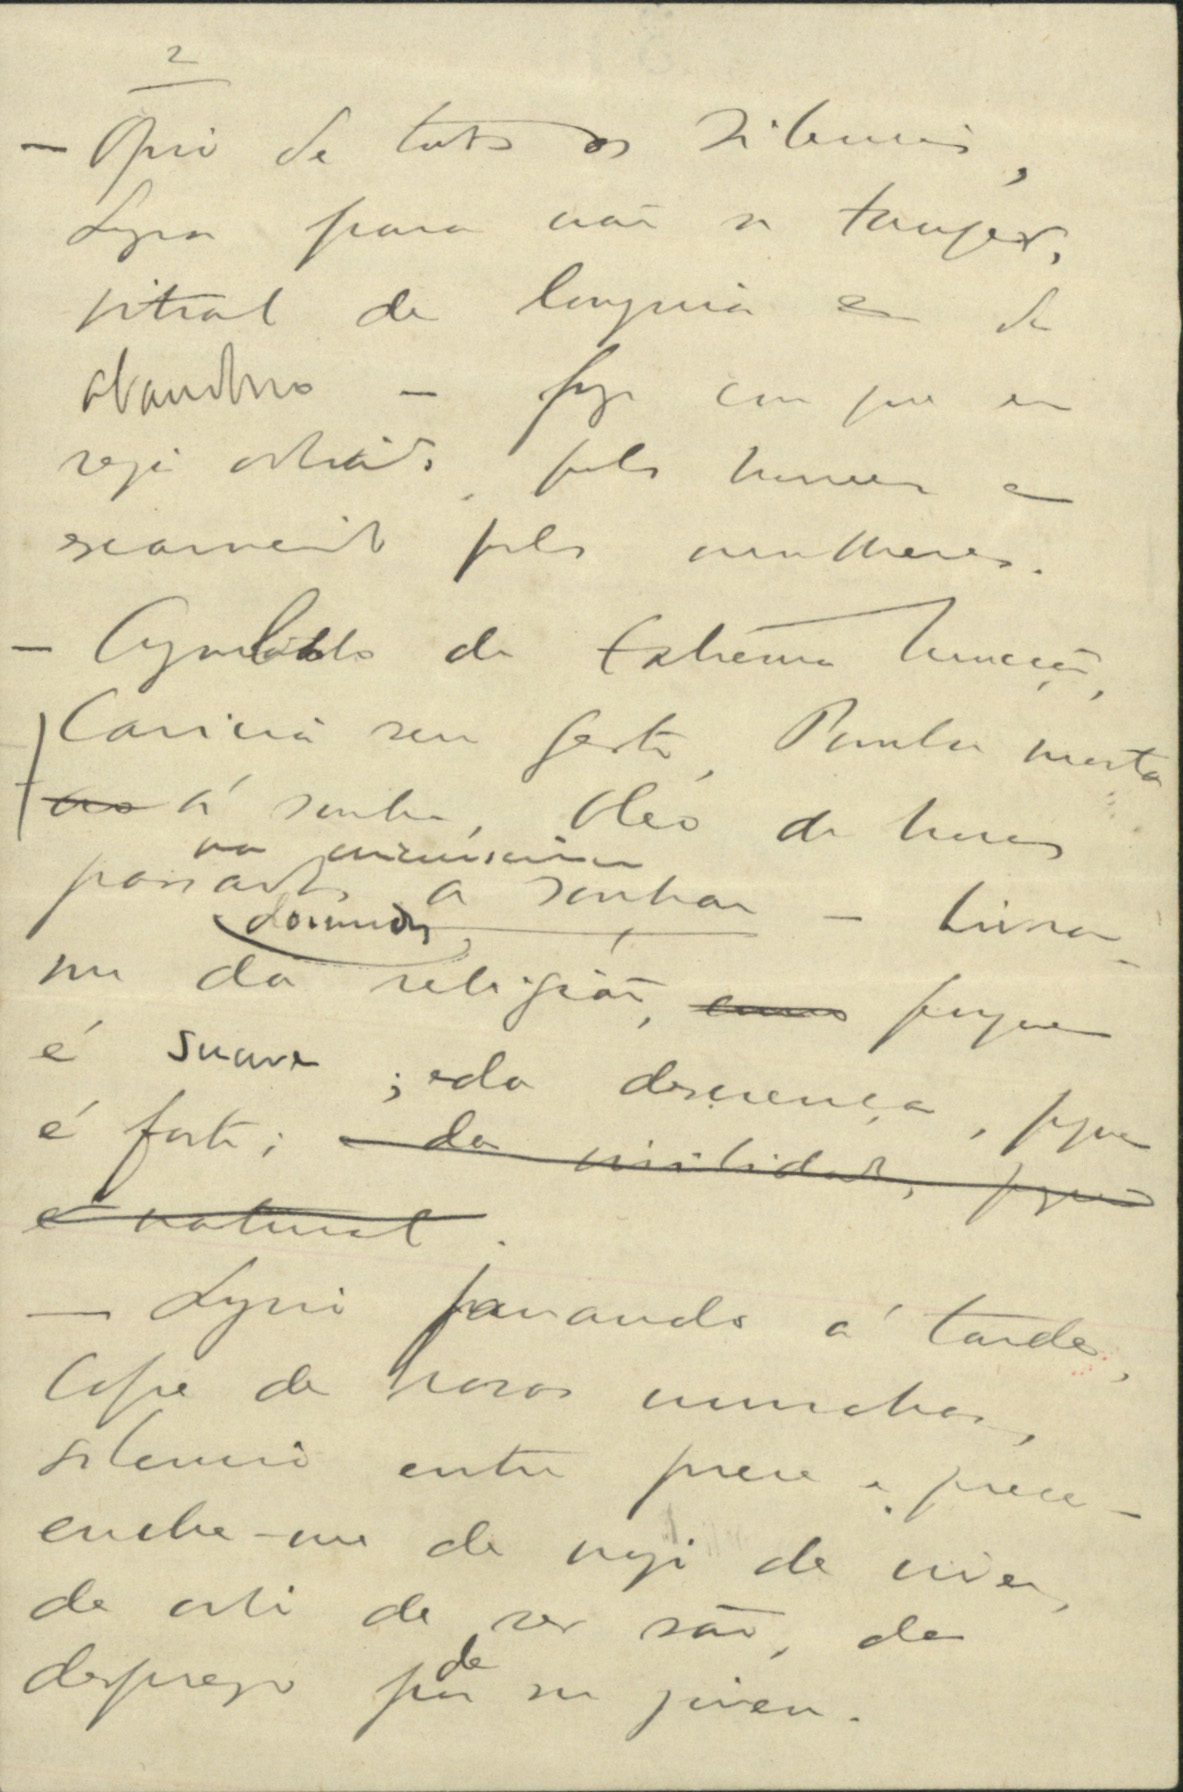 2
– Opio de todos os silencios,
Lyra para não se tanger,
Vitral de longinquo e de
abandono – faze com que eu
seja odiado pelos homens e
escarnecido pelas mulheres.
– Cymbalo de Extrema Uncção,
Caricia sem gesto, Pomba morta
ao á sombra, Oleo de horas
passadas a sonhar – Livra-
dormindo
me da religião, porque
é suave; e da descrença, porque
é forte; e da virilidade, porque
é natural.
– Lyrio fanando á tarde,
Cofre de rosas murchas,
silencio entre prece e prece –
enche-me de nojo de viver,
de odio de ser são, de
desprezo por de ser joven.